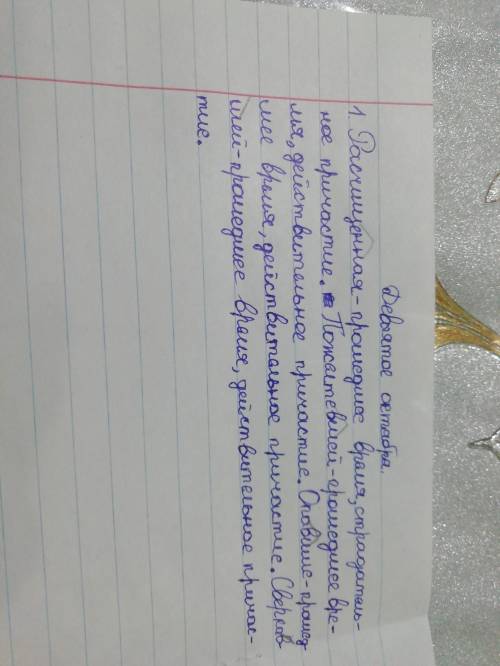 Девятое октября.
1. Расчищенная-прошедшее время, страдатель-
ное причастие. Пожелтевшей-прошедшее вре-
мя, действительное причастие. Опавшие-прошед
шее время, действительное причастие. Сверкав
шей-прошедшее время, действительное причас-
тие.